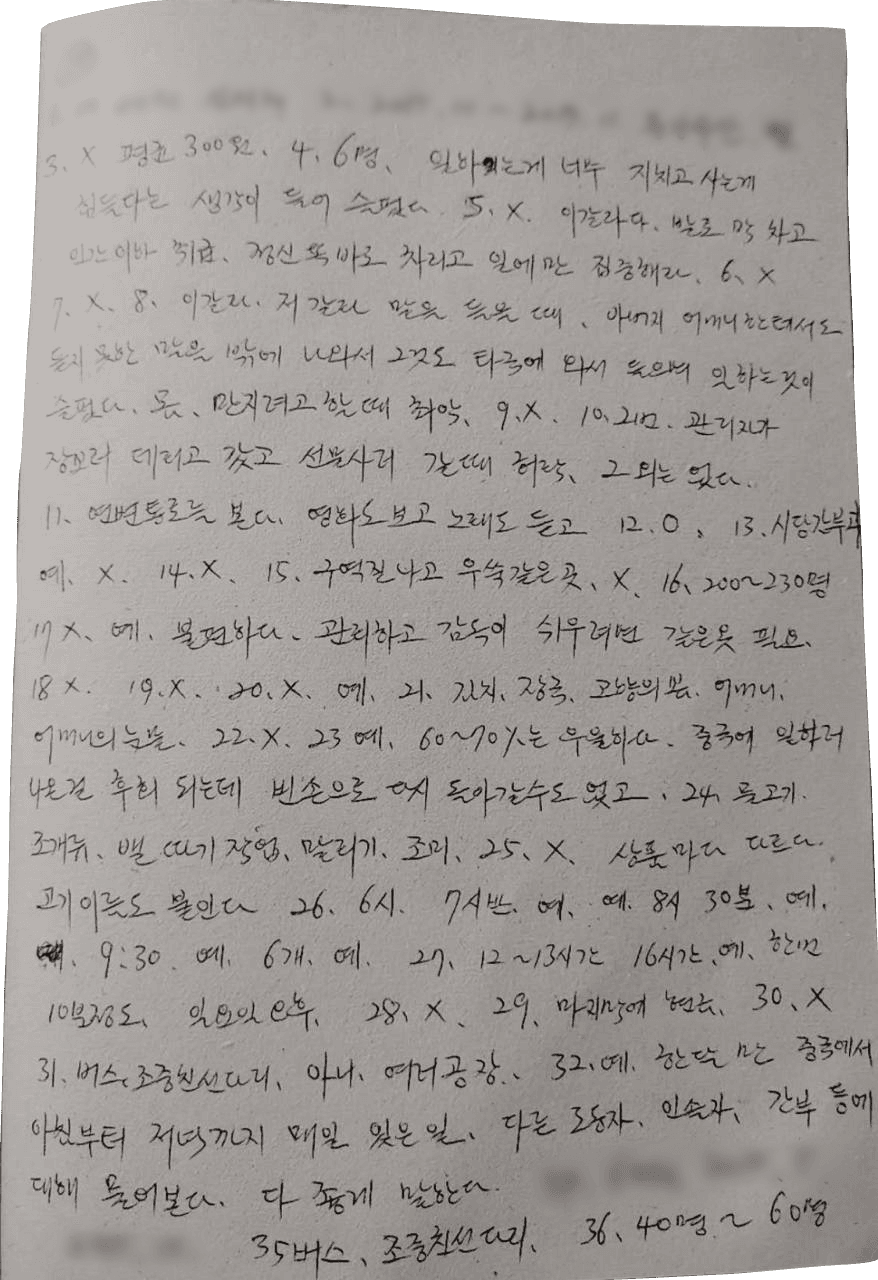 3. X 평균 300원、 4、6명、 일하는게 너무 지치고 사는게
힘들다는 생각이 들어 슬펐다. 5、X. 이갈라다. 발로 막 차고
인간이하 취급、 정신 똑바로 차리고 일에만 집중해라、 6、X
7、X、8、 이갈라. 저갈라 말을 들을 때、 아버지 어머니한테서도
듣지 못한 말을 밖에 나와서 그것도 타국에 와서 들으며 일하는것이
슬펐다、 몸、만지려고 할때 최악、 9、X、 10、2번、 관리자가
장보러 데리고 갔고 선물사러 갈때 허락、 그외는 없다.
11、연변통로를 본다、 영화도 보고 노래도 듣고 12.O、 13、시당간부과
예、 X、 14、X、 15、구역질나고 우쑥같은 곳、X、16、200~230명
17 X、 예、 불편하다、 관리하고 감독이 쉬우려면 같은옷 필요、
18 X. 19、X、 20、X、 예、 21、 김치、장국、 고향의 봄、어머니、
어머니의 눈물、 22、X、23 예、 60~70%는 우울하다、 중국에 일하러
나온걸 후회 되는데 빈손으로 다시 돌아갈수도 없고、24、물고기.
조개류、밸 따기 작업、말리기、조미、25、X、 상품마다 다르다.
고기이름도 붙인다 26、6시、 7시반、예、 예、8시 30분、예、
9:30、예、 6개、예、 27、12~13시간 16시간、예、한번
10분정도、 일요일오후、 28、X、 29、마지막에 현금、30、X
31、버스、조중친선다리、 아니、여러공장、 32、예、 한달 만 중국에서
아침부터 저녁까지 매일 있은 일、다른 로동자、인솔자、간부 등에
대해 물어본다、 다 좋게 말한다.
35버스、조중친선다리、 36、40명~60명